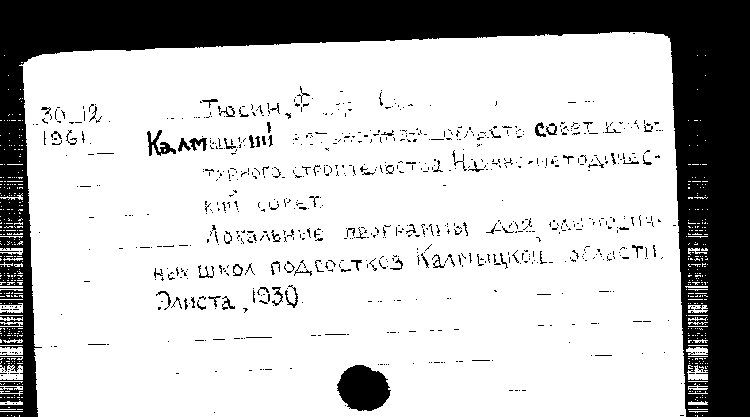 30_12 Тюсин, Ф
1961 Калмыцкий область совет куль-
турного строительства Научно-методичес-
кий совет
Локальные программы для одногодич-
ных школ подростков Калмыцкой области.
Элиста, 1930